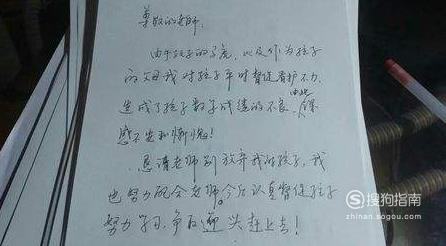 尊敬的老师,
由于孩子的贪底,以及作为孩子
的父母我对孩子平时督促看护不力,
造成了孩子数学成绩的不良,由此深
感不安和惭愧!
恳请老师别放弃我的孩子,我
也努力配合老师,今后认真督促孩子
努力学习,争取迎头赶上去!
搜狗指南
zhinan.sogou.com